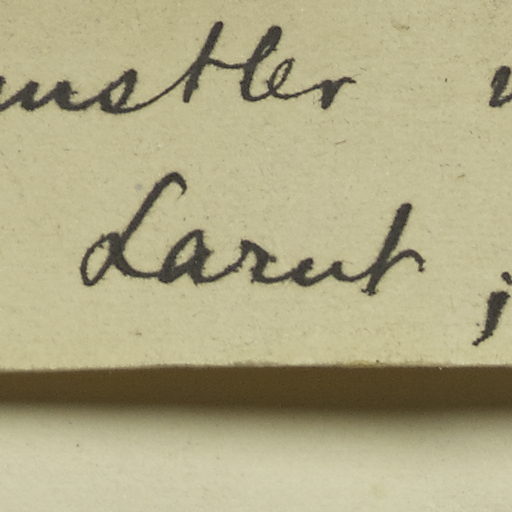 unstler
Larut ;